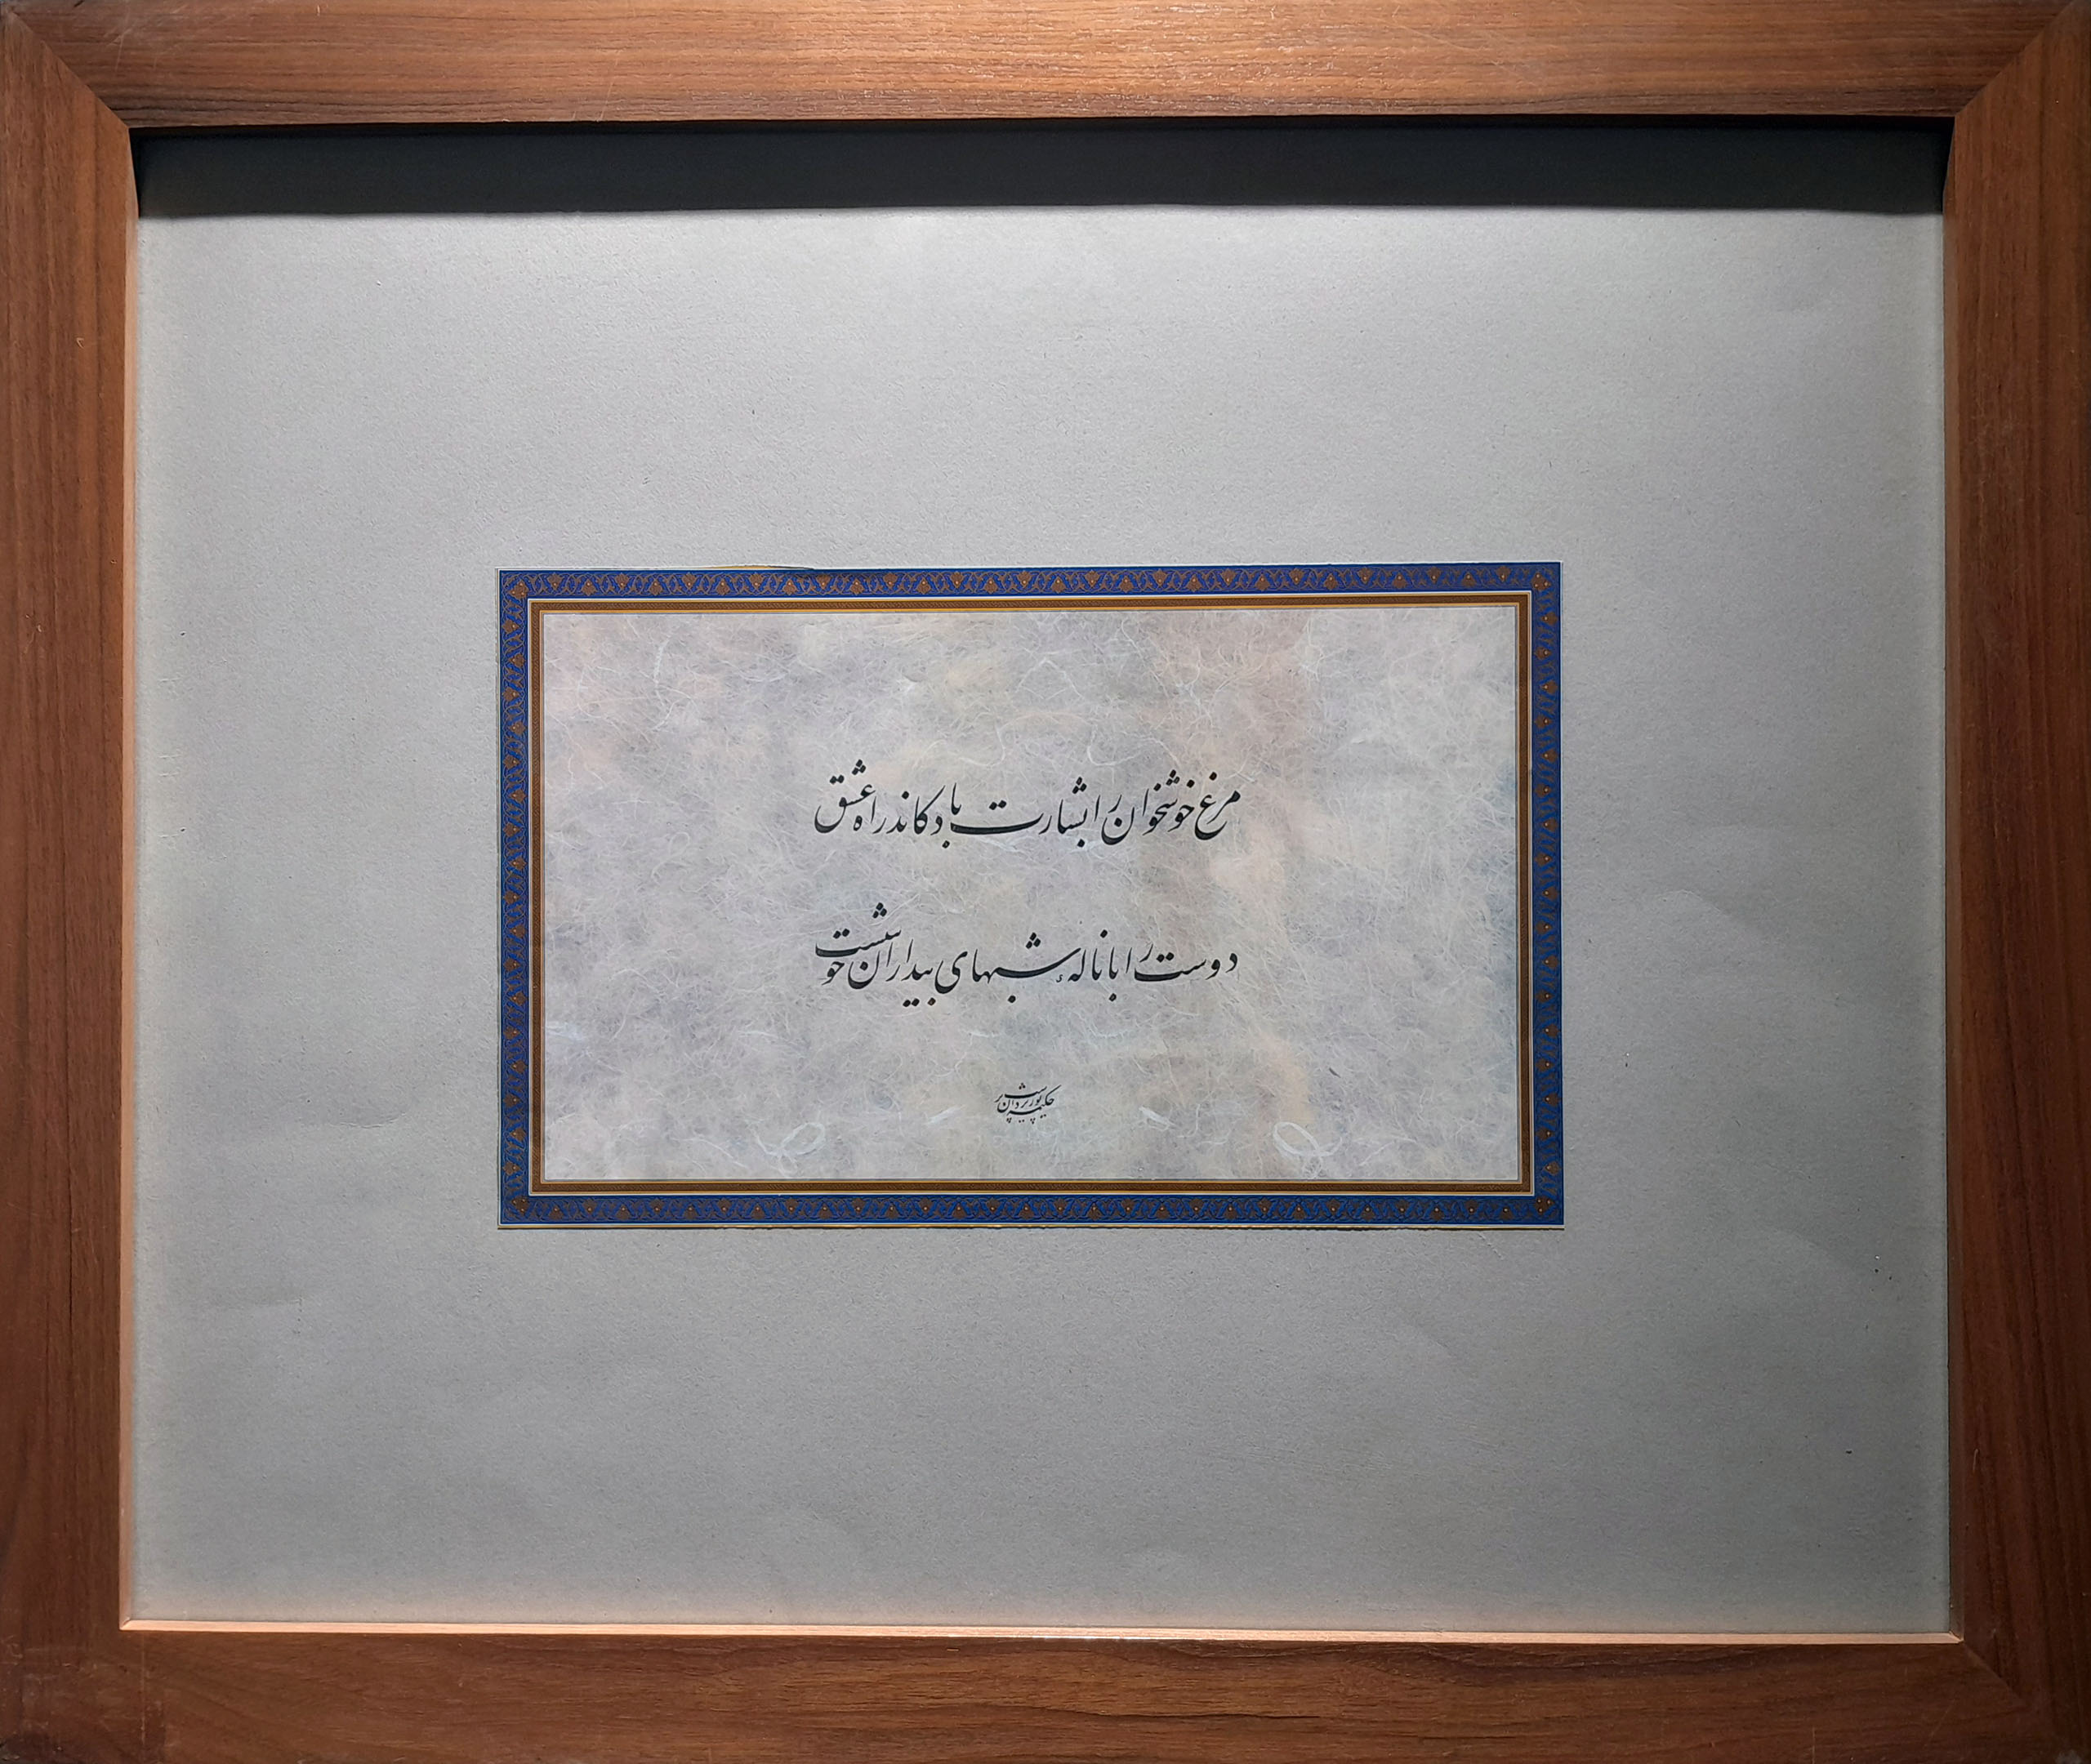 مرغ خوشخوان را بشارت باد کاندر راه عشق
دوست را با نالهٔ شبهای بیداران خوشست
حکیمه پوریزدان پرست